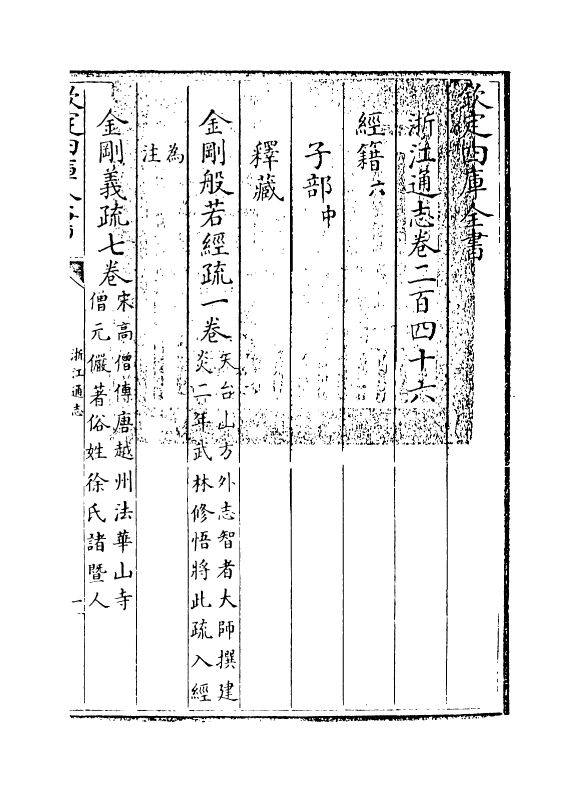 欽定四庫全書
浙江通志卷二百四十六
經籍六
子部中
釋藏
金剛般若經疏一卷天台山方外志智者大師撰建
炎二年武林修悟將此疏入經
為
注
金剛義疏七卷宋高僧傳唐越州法華山寺
僧元儼著俗姓徐氏諸暨人
欽定四庫全書
浙江通志
一